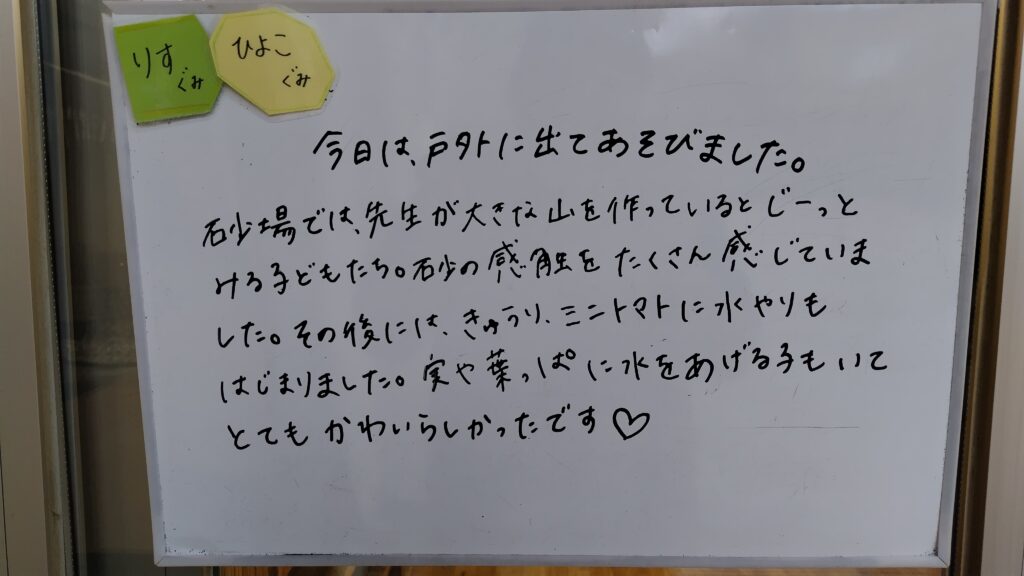 りすぐみ
ひよこぐみ
今日は、戸外に出てあそびました。
砂場では、先生が大きな山を作っているとじーっと
みる子どもたち。砂の感触をたくさん感じていま
した。その後には、きゅうり、ミニトマトに水やりも
はじまりました。実や葉っぱに水をあげる子もいて
とてもかわいらしかったです♡